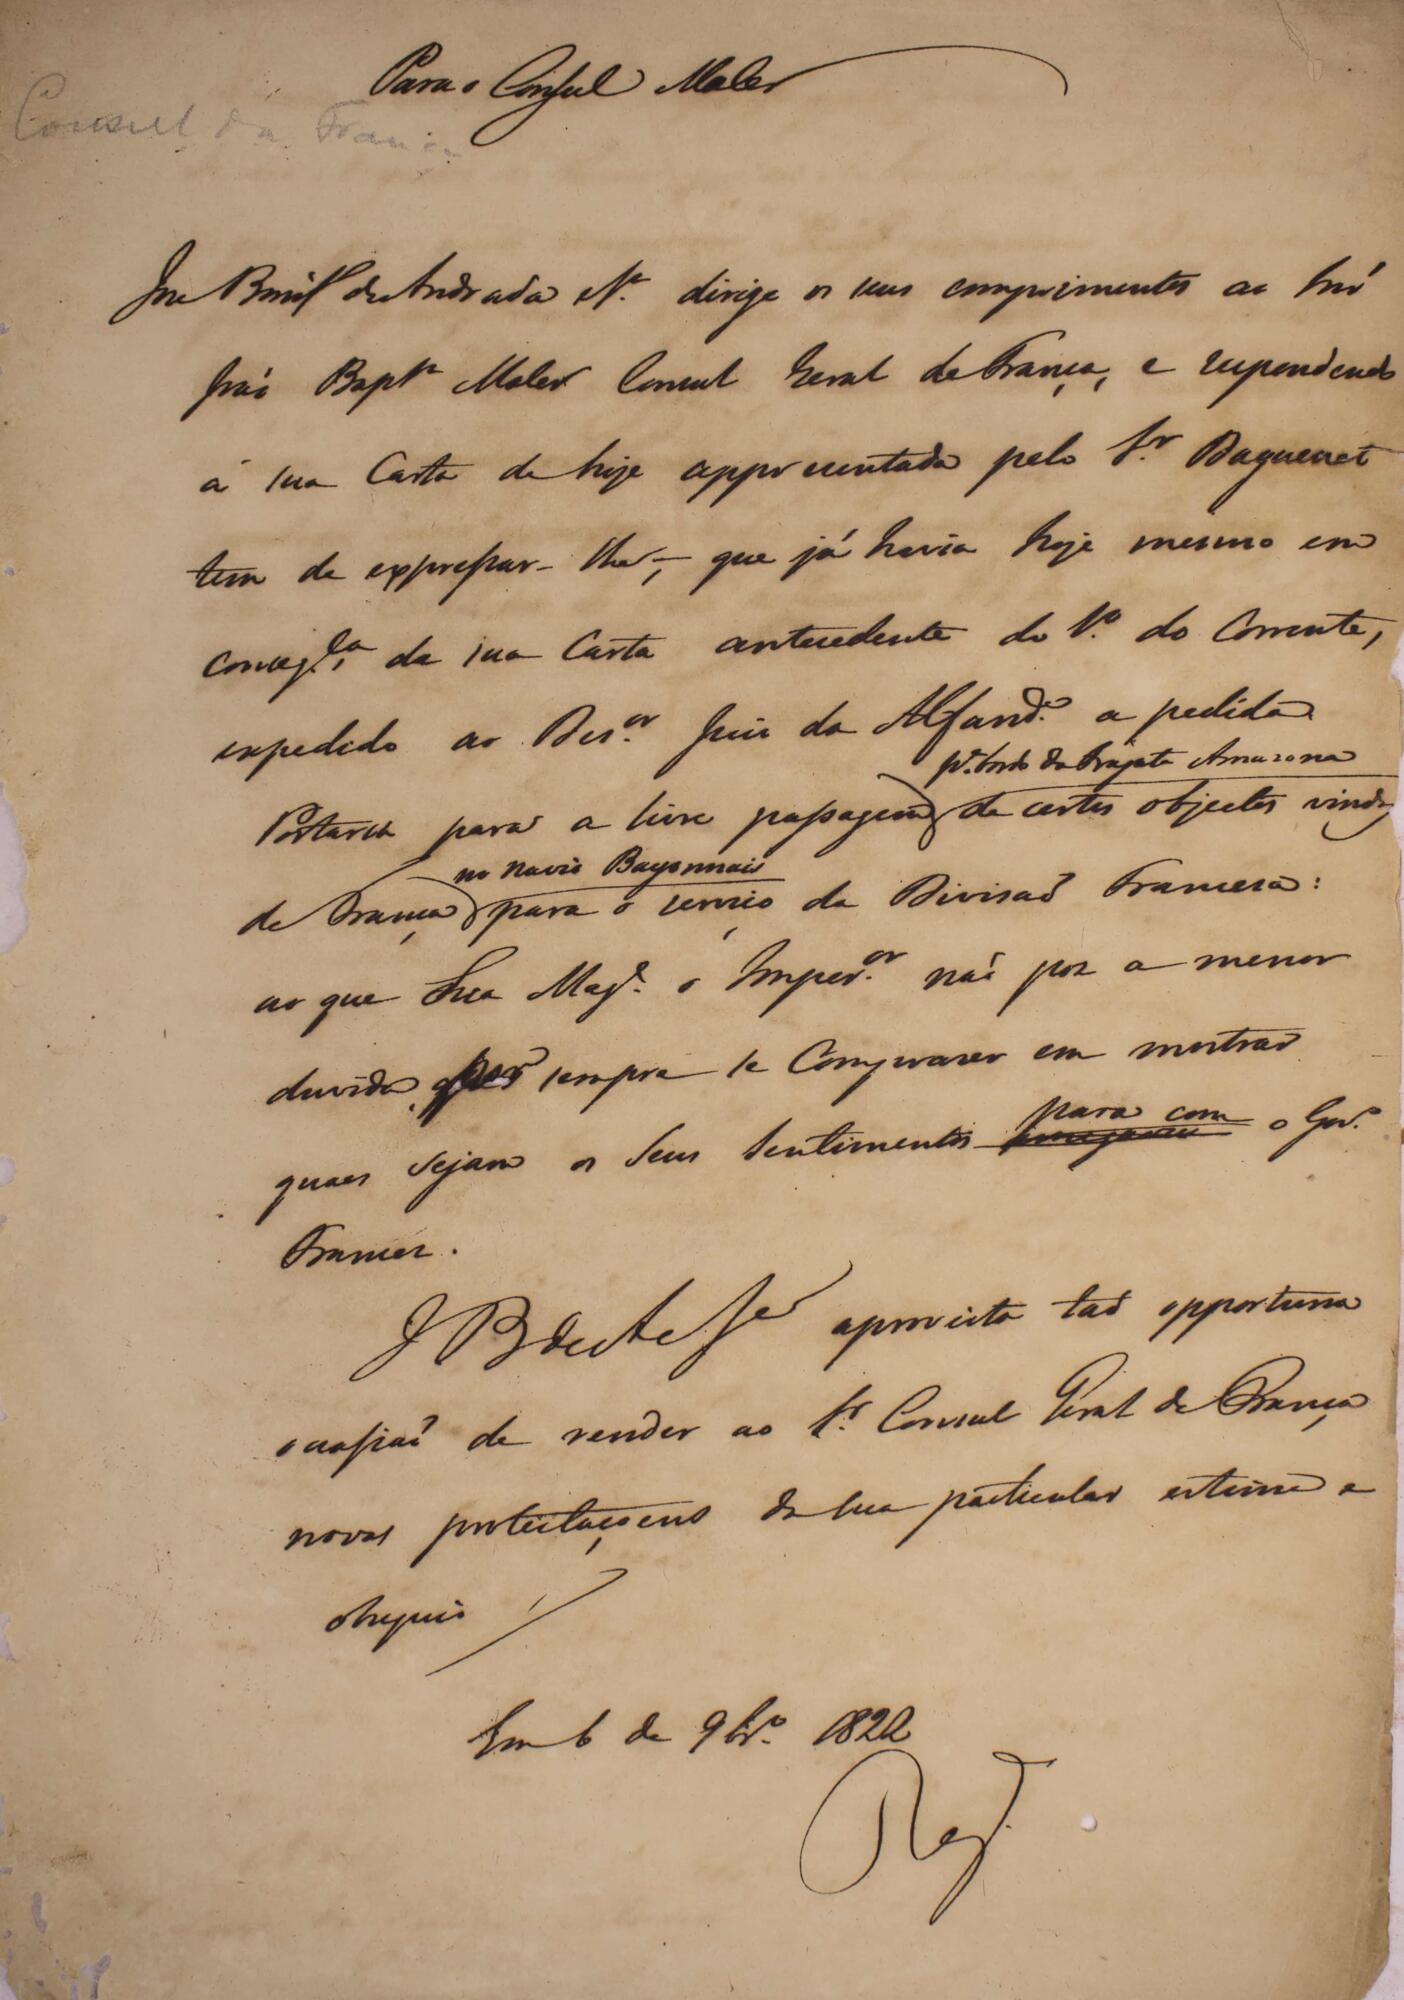 Para o Consul Maler
Consul da França
Joze Bonifº de Andrada e Sª. dirige os seus comprimentos ao Snr
João Baptª Maler Consul Geral de França, e respondendo
á sua Carta de hoje appresentada pelo Sr. Baguenet
tem de expressar-lhe, que já havia hoje mesmo em
conseq.cia da sua Carta antecedente do 1.º do Corrente,
expedido ao Des.or Juiz da Alfand.ª a pedida
pª. bordo da Fragata Amazona
Portaria para a livre passagem de certos objectos vindos
no navio Bayonnais
de França para o serviço da Divisaõ Francesa:
ao que Sua Mag.e o Imper.or naõ poz a menor
duvida, por sempre se Comprazer em mostrar
para com
quaes sejam os Seus Sentimentos o Gov.º
Francez.
J B de A e S.ª aproveita taõ opportuna
occasiaõ de render ao Sr. Consul Geral de França
novas protestaçoens da sua particular estima e
obsequio
Em 6 de 9br.º 1822
Reg.